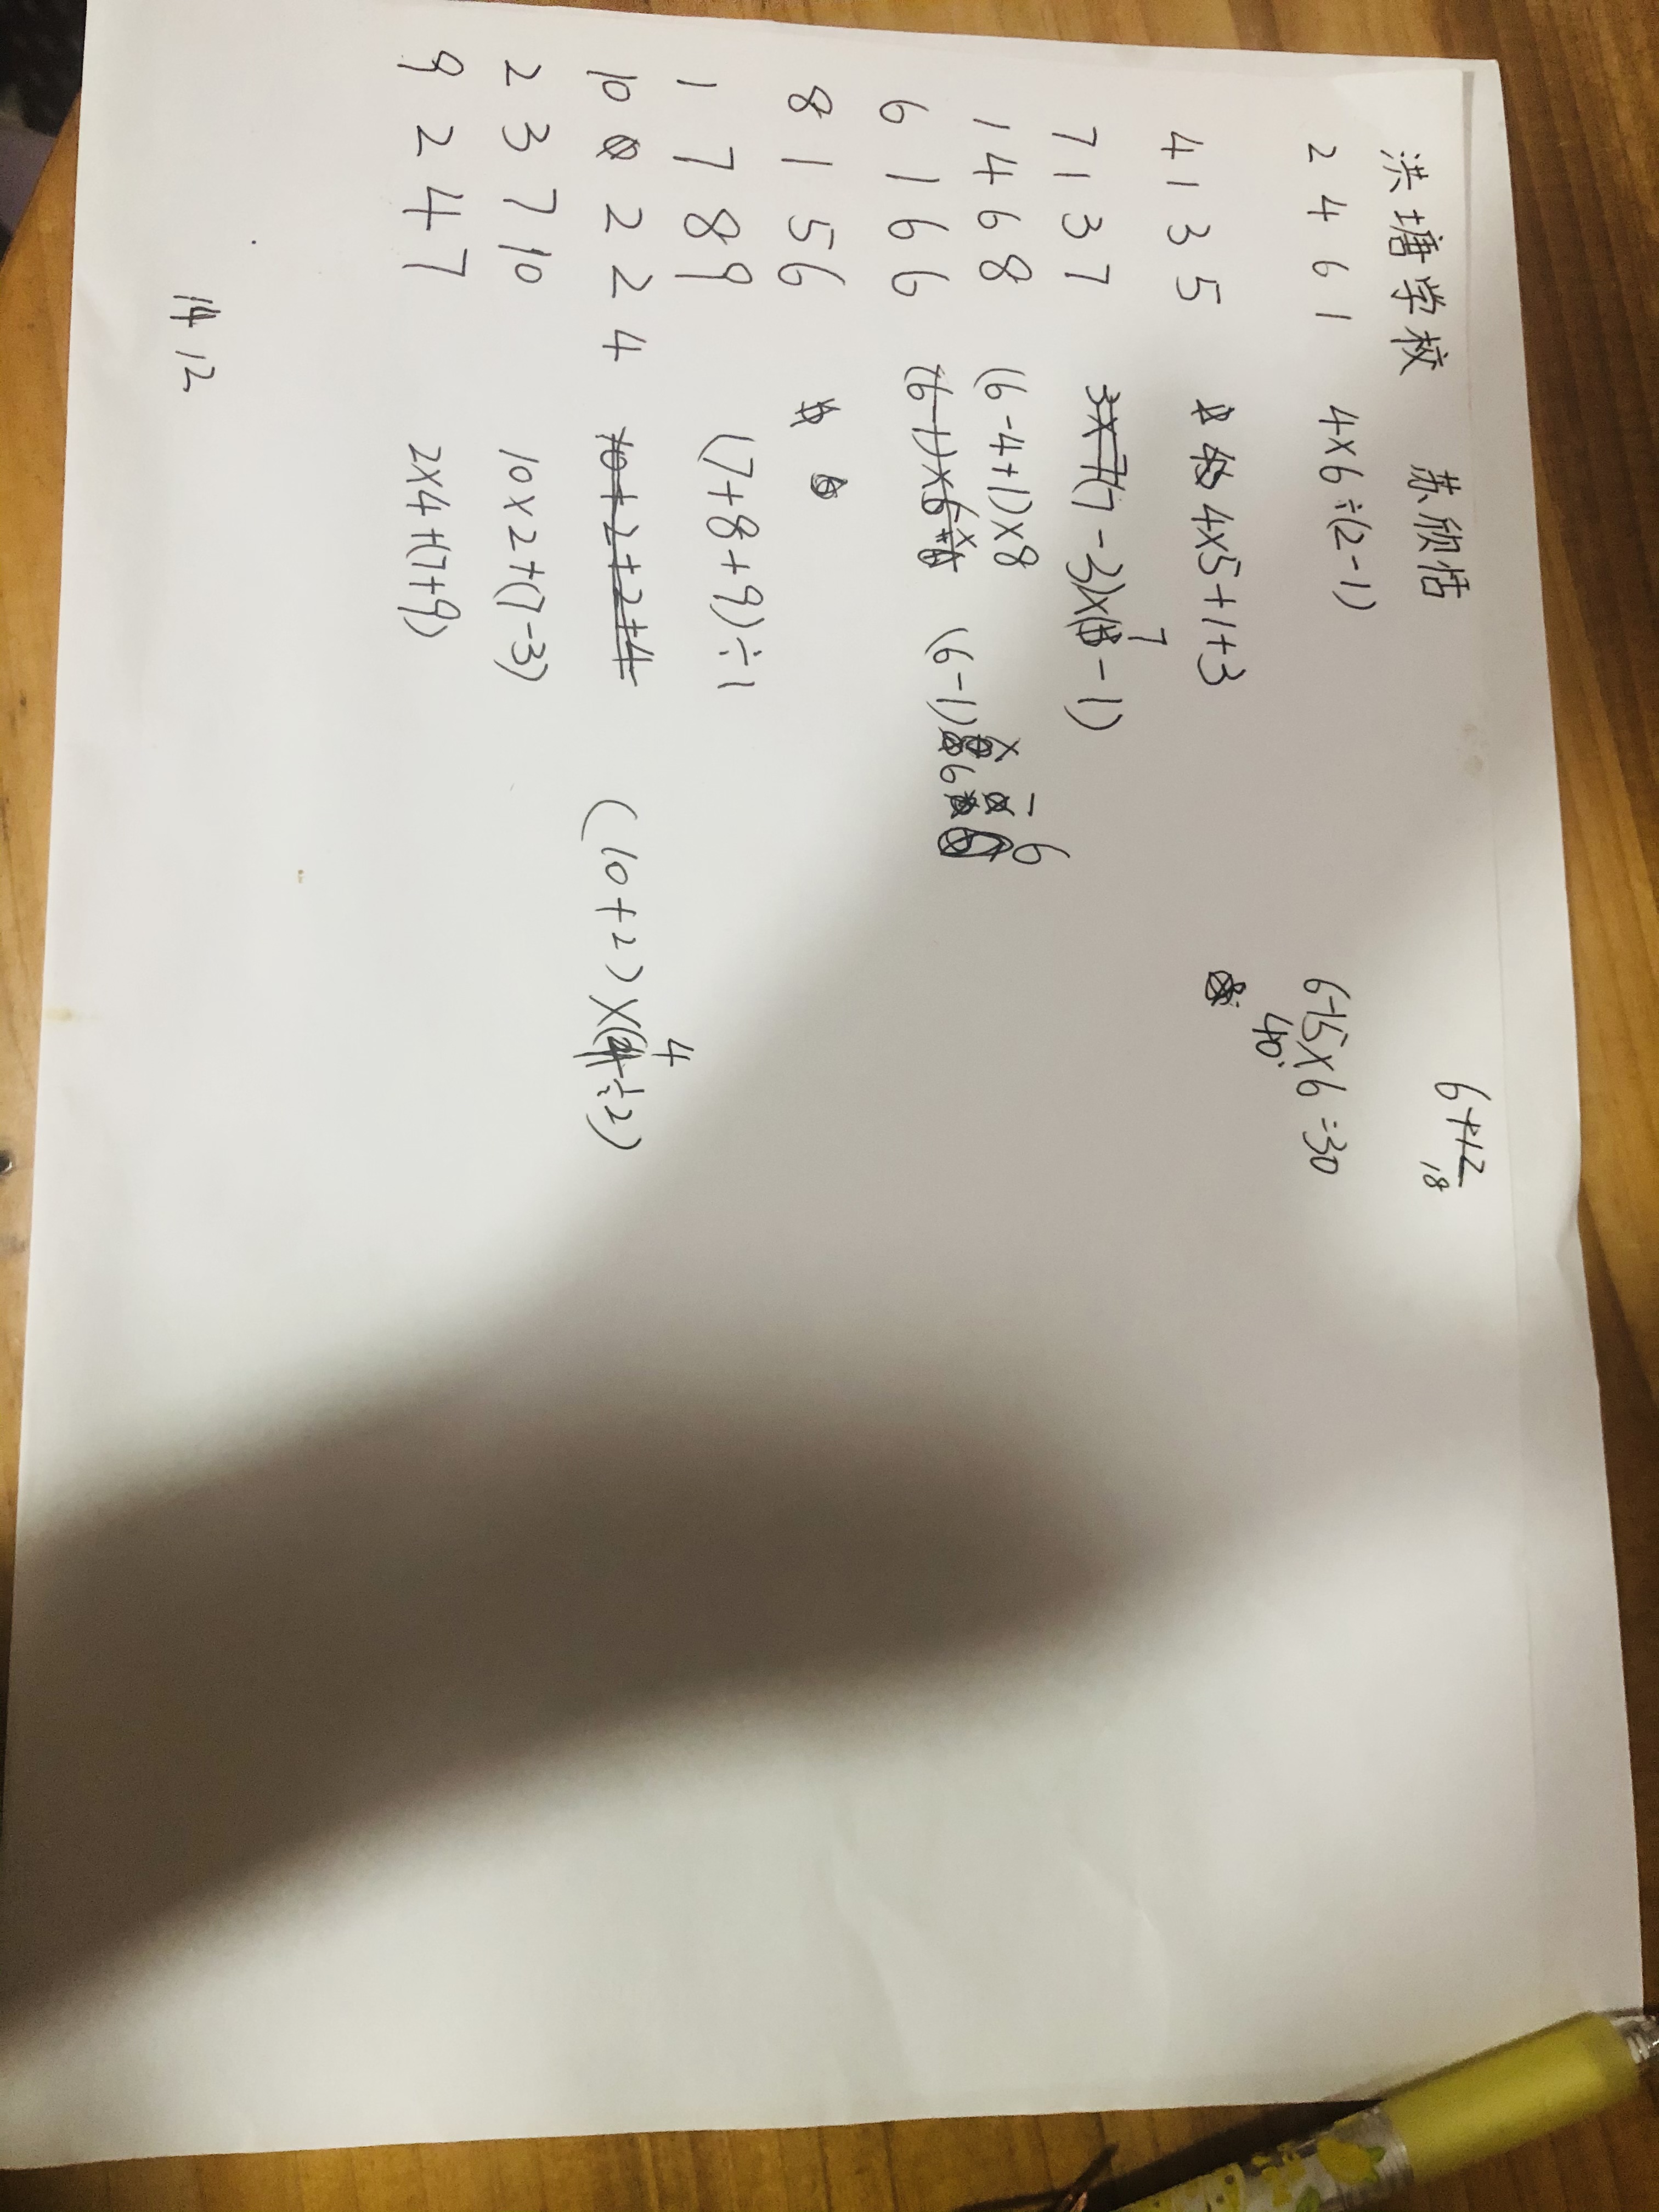 洪塘学校 苏欣恬
6++2
18
2 4 6 1 4×6÷(2-1)
6-15×6=30
40
4 1 3 5 4×5+1+3
7 1 3 7 3×7(7-3)×(7-1)
1 4 6 8 (6-4+1)×8
6 1 6 6 (6-1)×6 (6-1)×6-6
8 1 5 6
1 7 8 9 (7+8+9)÷1
10 2 2 4 10+2+2+4 (10+2)×(4÷2)
2 3 7 10 10×2+(7-3)
9 2 4 7 2×4+(7+9)
14 12